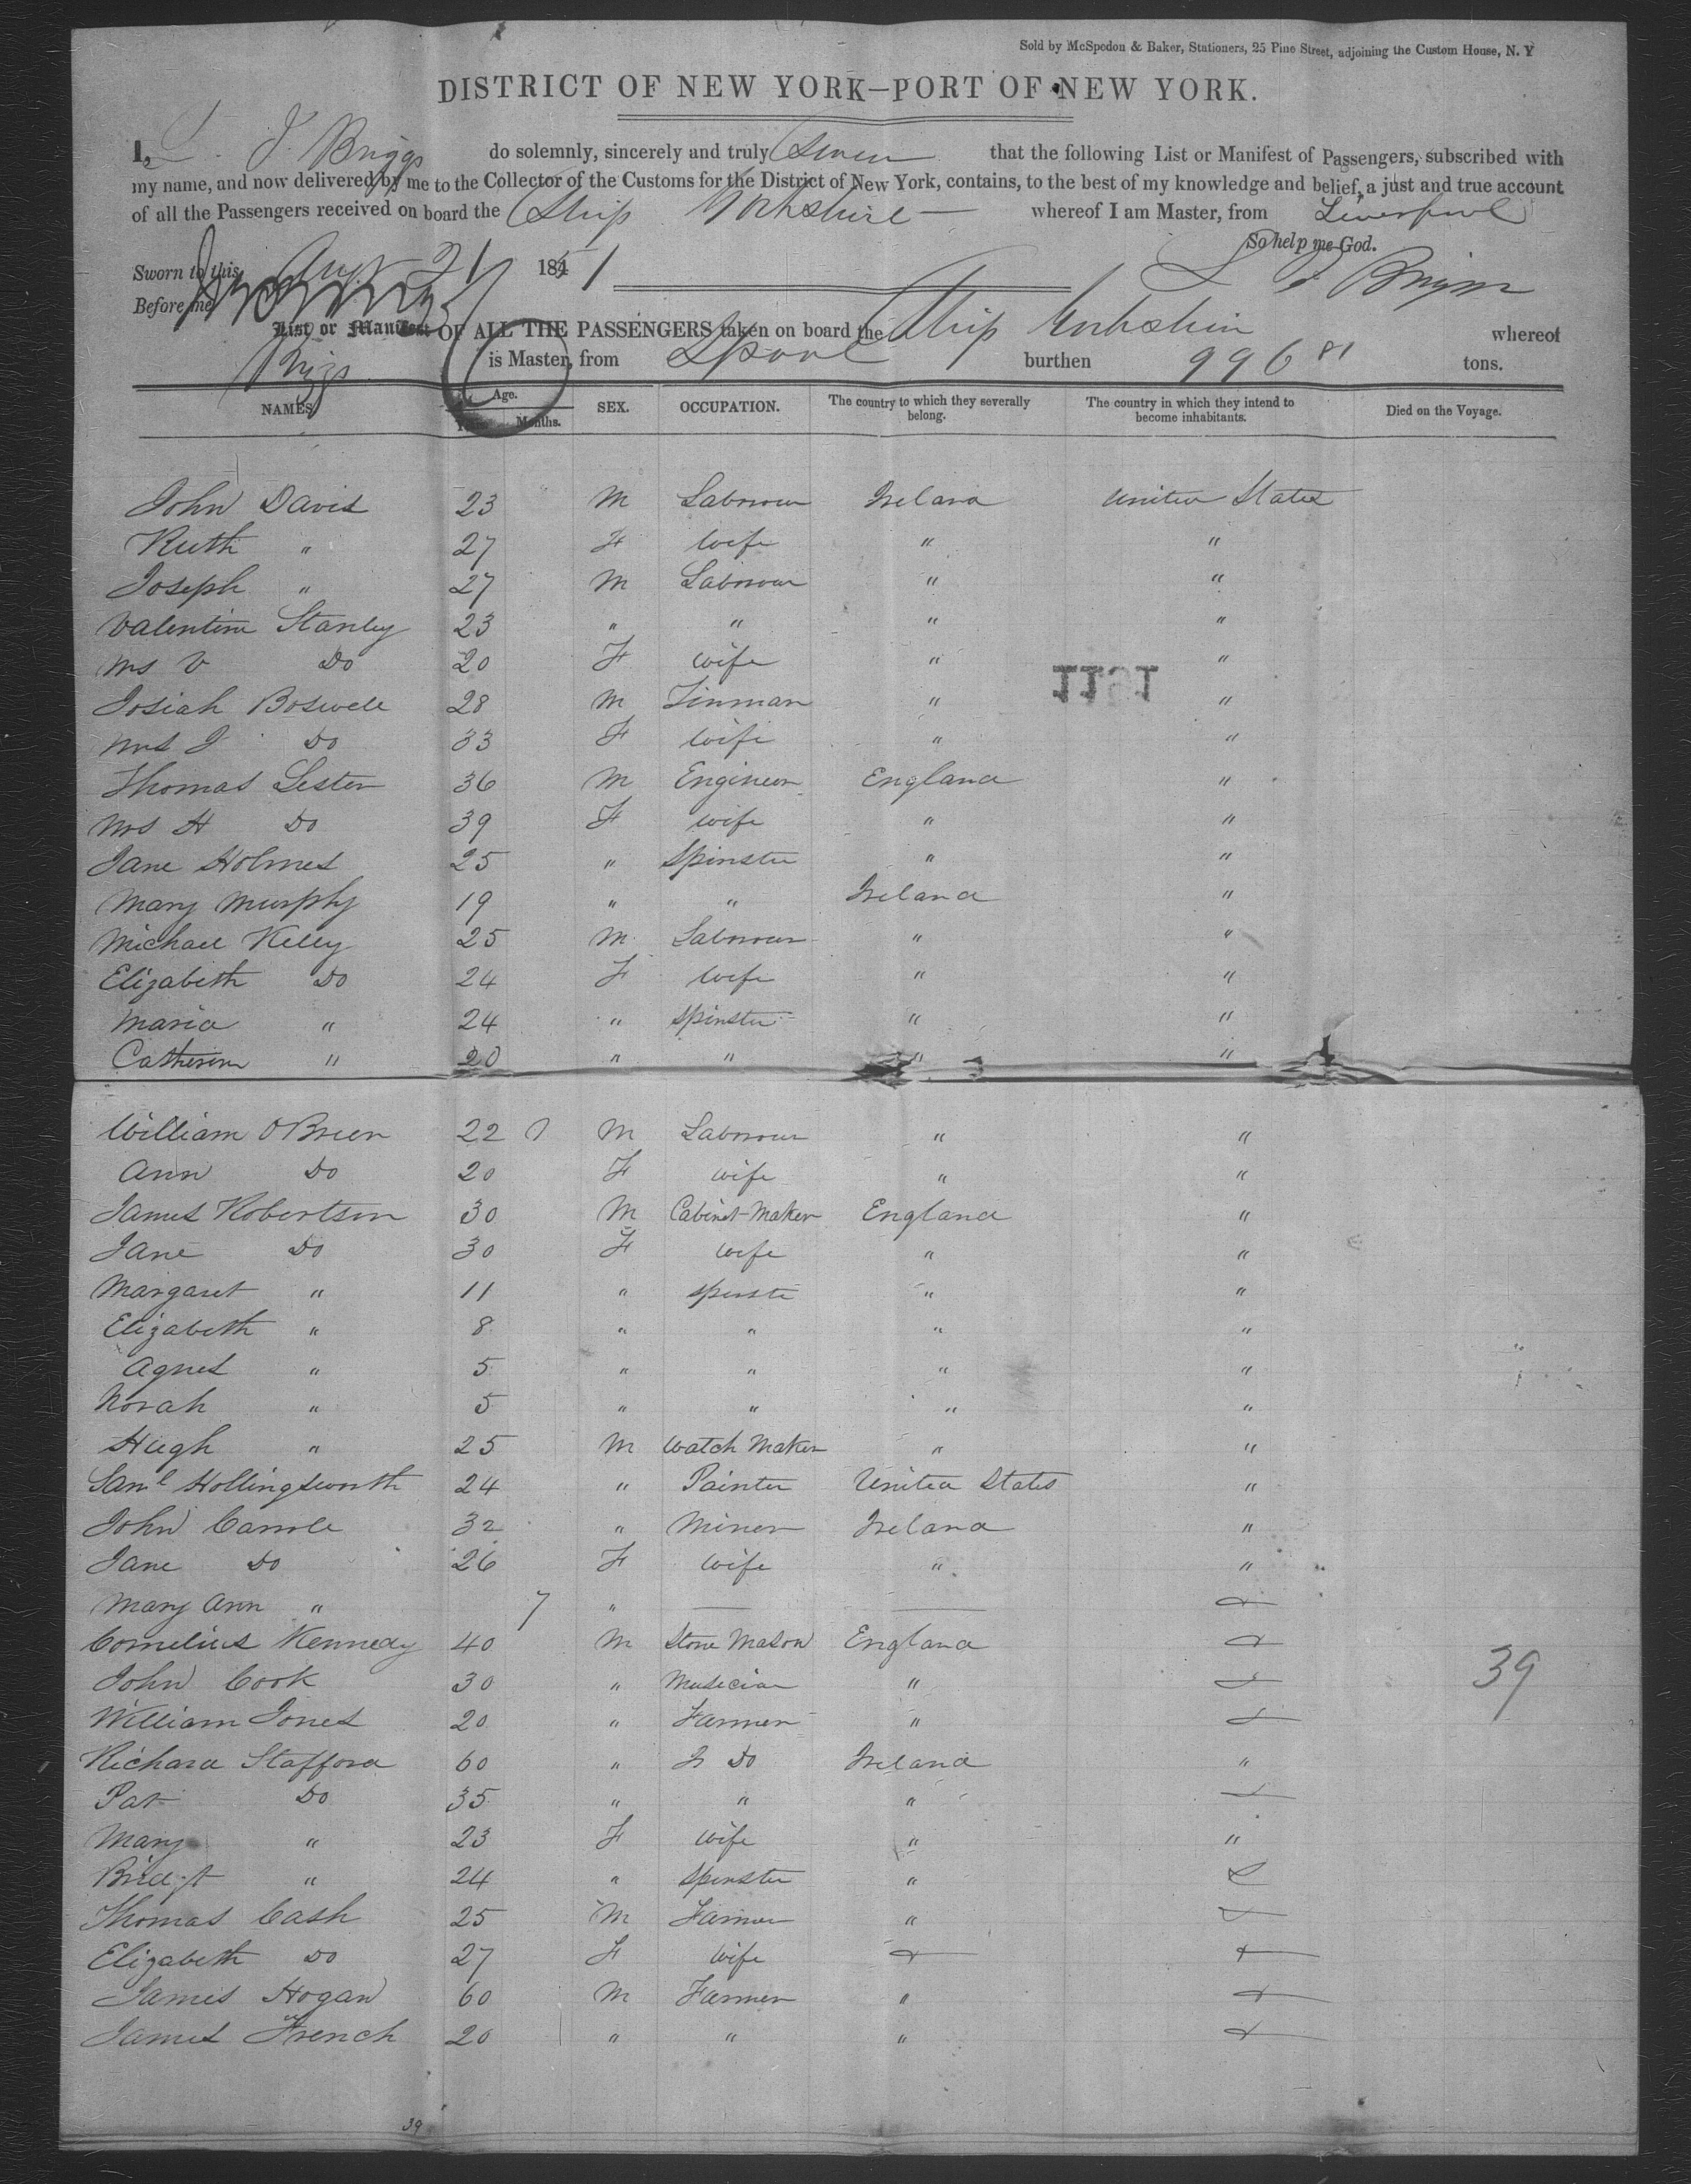 Sold by McSpedon & Baker, Stationers, 25 Pine Street, adjoining the Custom House, N. Y
DISTRICT OF NEW YORK—PORT OF NEW YORK.
I, J. Briggs do solemnly, sincerely and truly Swear that the following List or Manifest of Passengers, subscribed with
my name, and now delivered by me to the Collector of the Customs for the District of New York, contains, to the best of my knowledge and belief, a just and true account
of all the Passengers received on board the Ship Yorkshire whereof I am Master, from Liverpool
So help me God.
Sworn to this Aug 21 1851
Before me
List or Manifest OF ALL THE PASSENGERS taken on board the Ship Yorkshire whereof
Briggs is Master, from Lpool burthen 996 81 tons.
NAMES Age. Years Months. SEX. OCCUPATION. The country to which they severally belong. The country in which they intend to become inhabitants. Died on the Voyage.
John Davis 23 M Labourer Ireland United States
Ruth " 27 F Wife " "
Joseph " 27 M Labourer " "
Valentine Stanley 23 " " " "
Mrs V Do 20 F Wife " "
1191
Josiah Boswell 28 M Tinman " "
Mrs J Do 33 F Wife " "
Thomas Lester 36 M Engineer England "
Mrs H Do 39 F Wife " "
Jane Holmes 25 " Spinster " "
Mary Murphy 19 " " Ireland "
Michael Kelly 25 M Labourer " "
Elizabeth Do 24 F Wife " "
Maria " 24 " Spinster " "
Catherine " 20 " " " "
William O Brien 22 M Labourer " "
Ann Do 20 F Wife " "
James Robertson 30 M Cabinet-Maker England "
Jane Do 30 F Wife " "
Margaret " 11 " Spinster " "
Elizabeth " 8 " " " "
Agnes " 5 " " " "
Norah " 5 " " " "
Hugh " 25 M Watch Maker " "
Saml Hollingsworth 24 " Painter United States "
John Carrole 32 " Miner Ireland "
Jane Do 26 F Wife " "
Mary Ann " 7 " — —
Cornelius Kennedy 40 M Stone Mason England
John Cook 30 " Musician "
39
William Jones 20 " Farmer "
Richard Stafford 60 " Do Ireland "
Pat Do 35 " " "
Mary " 23 F Wife " "
Bridgt " 24 " Spinster "
Thomas Cash 25 M Farmer "
Elizabeth Do 27 F Wife
James Hogan 60 M Farmer "
James French 20 " " "
39